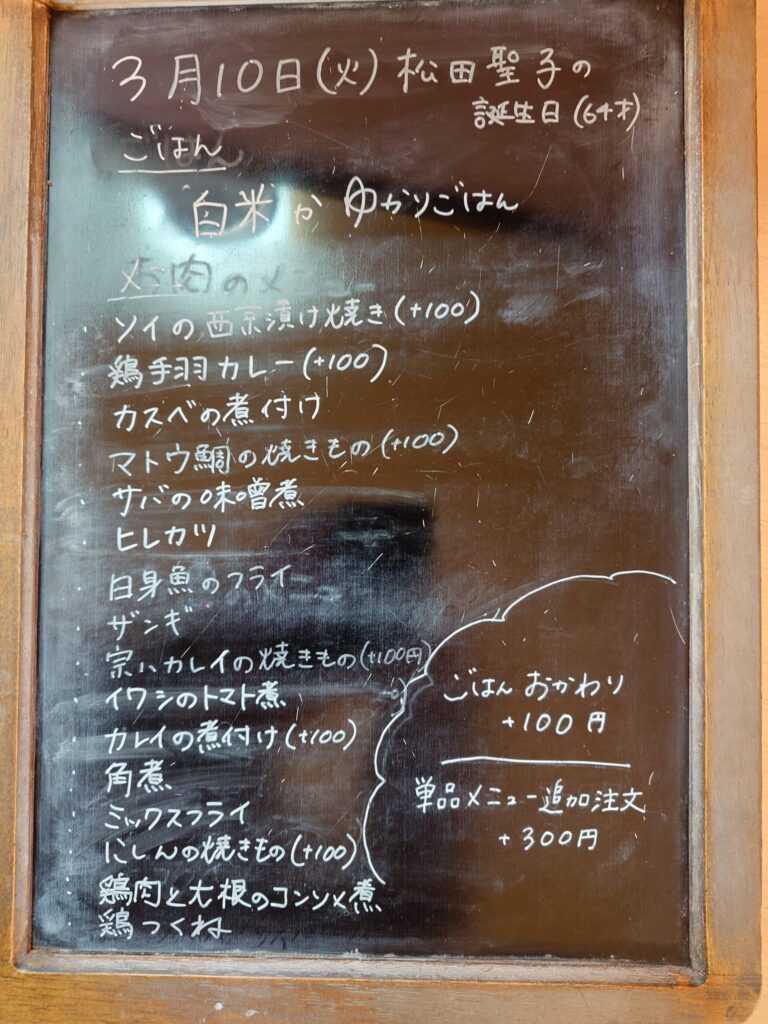 3月10日(火)松田聖子の
誕生日(64才)
ごはん
白米かゆかりごはん
お肉のメニュー
・ソイの西京漬け焼き(+100)
・鶏手羽カレー(+100)
・カスベの煮付け
・マトウ鯛の焼きもの(+100)
・サバの味噌煮
・ヒレカツ
・白身魚のフライ
・ザンギ
・宗ハカレイの焼きもの(+100円)
・イワシのトマト煮
・カレイの煮付け(+100)
・角煮
・ミックスフライ
・にしんの焼きもの(+100)
・鶏肉と大根のコンソメ煮
・鶏つくね
ごはんおかわり
+100円
単品メニュー追加注文
+300円